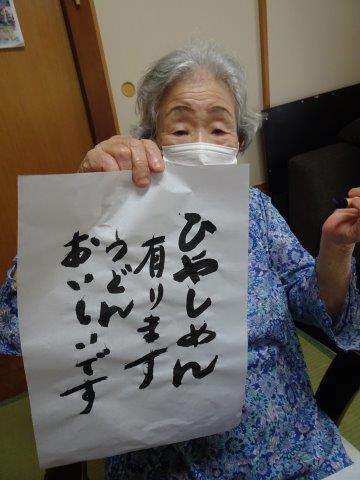 ひやしめん
有ります
うどん
おいしいです